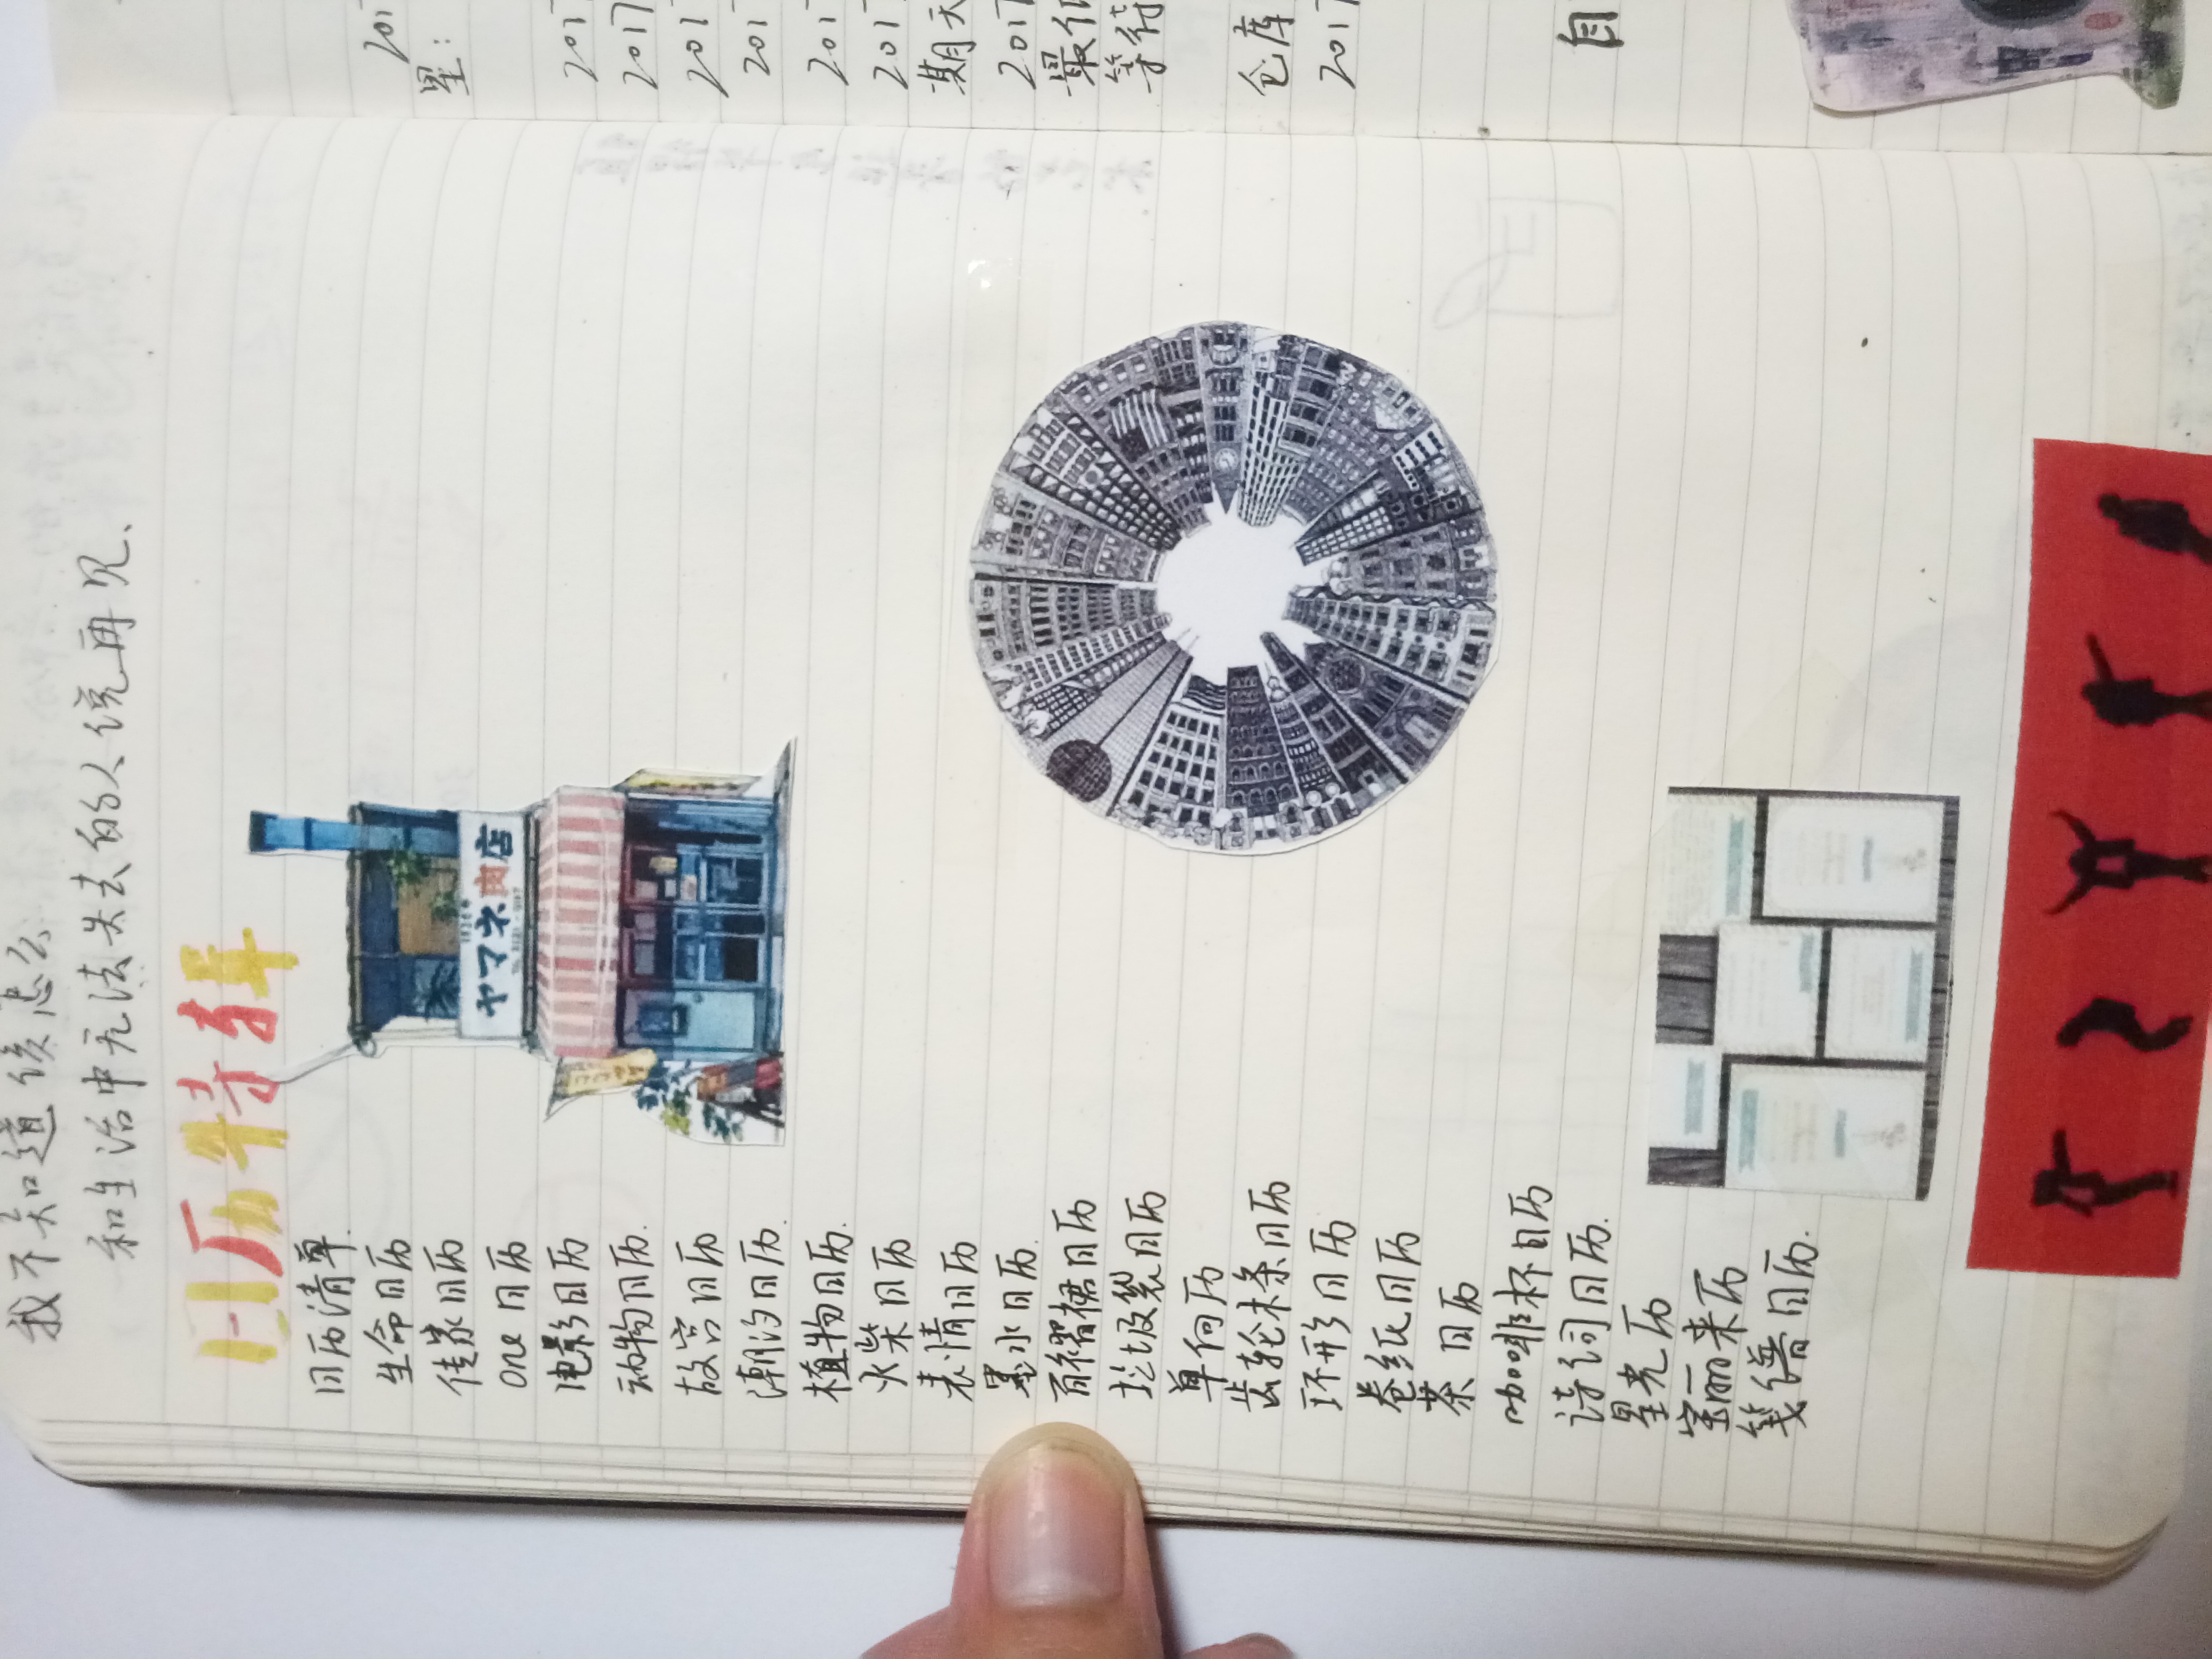 我不知道该怎么
和生活中无法失去的人说再见、
日历特有单
日历清单.
生命日历
传家日历
one 日历
电影日历
动物日历.
故宫日历
潮汐日历.
植物日历.
火柴日历
表情日历
墨水日历.
百褶裙日历
垃圾袋日历
单向历
齿轮木条日历
环形日历
卷纸日历
茶 日历
咖啡杯日历
诗词日历.
星光历
宝丽来历
篾谱日历.
ヤマネ肉店
201
星：
2017
2017
201
201
201
2017
期天
2017
最
等待
仓库
2017
自